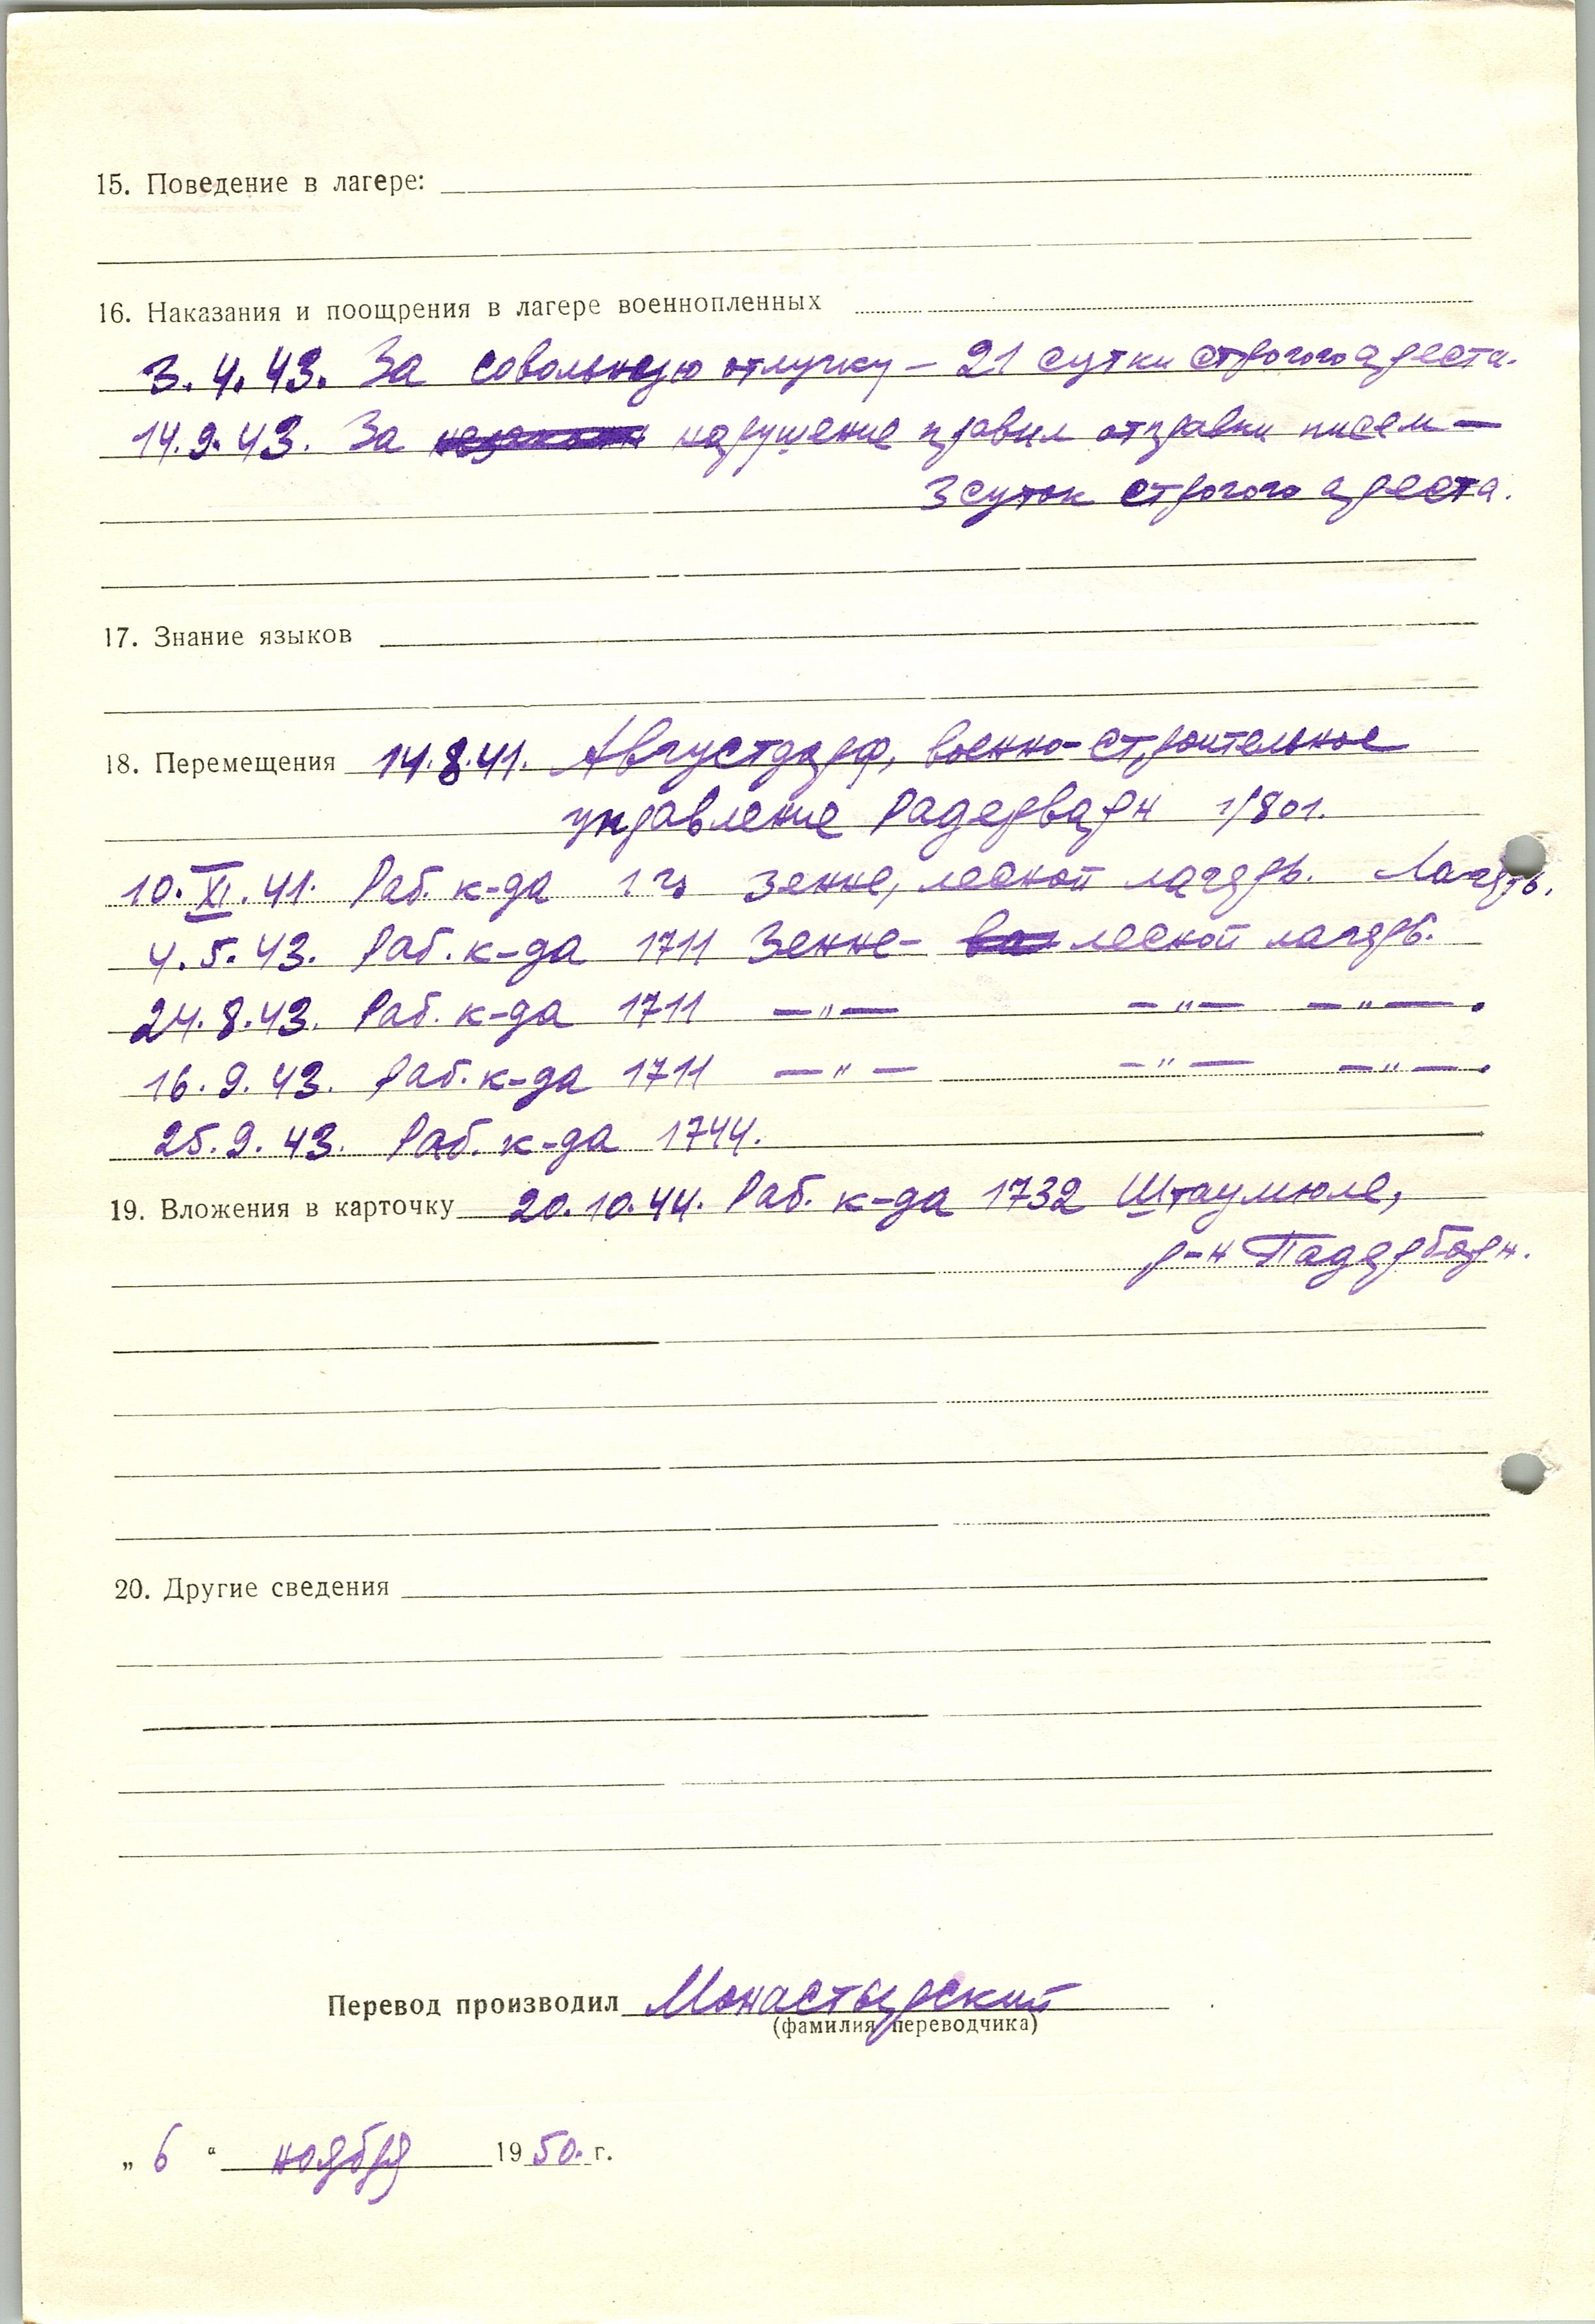 15. Поведение в лагере:
16. Наказания и поощрения в лагере военнопленных
3.4.43. За совольную отлучку – 21 сутки строгого ареста.
14.9.43. За нарушение правил отправки писем —
3 суток строгого ареста.
17. Знание языков
18. Перемещения 14.8.41. Августдорф, военно-строительное
управление Радерварн 1/801.
10.XI.41. Раб. к-да Зенне, лесной лагерь. Лагерь.
4.5.43. Раб. к-да 1711 Зенне- лесной лагерь.
24.8.43. Раб. к-да 1711 —„— —„— —„—.
16.9.43. Раб. к-да 1711 —„— —„— —„—.
25.9.43. Раб. к-да 1744.
19. Вложения в карточку 20.10.44. Раб. к-да 1732 Штаумюле,
р-н Падерборн.
20. Другие сведения
Перевод производил Монастырский
(фамилия переводчика)
„ 6 “ ноября 1950. г.